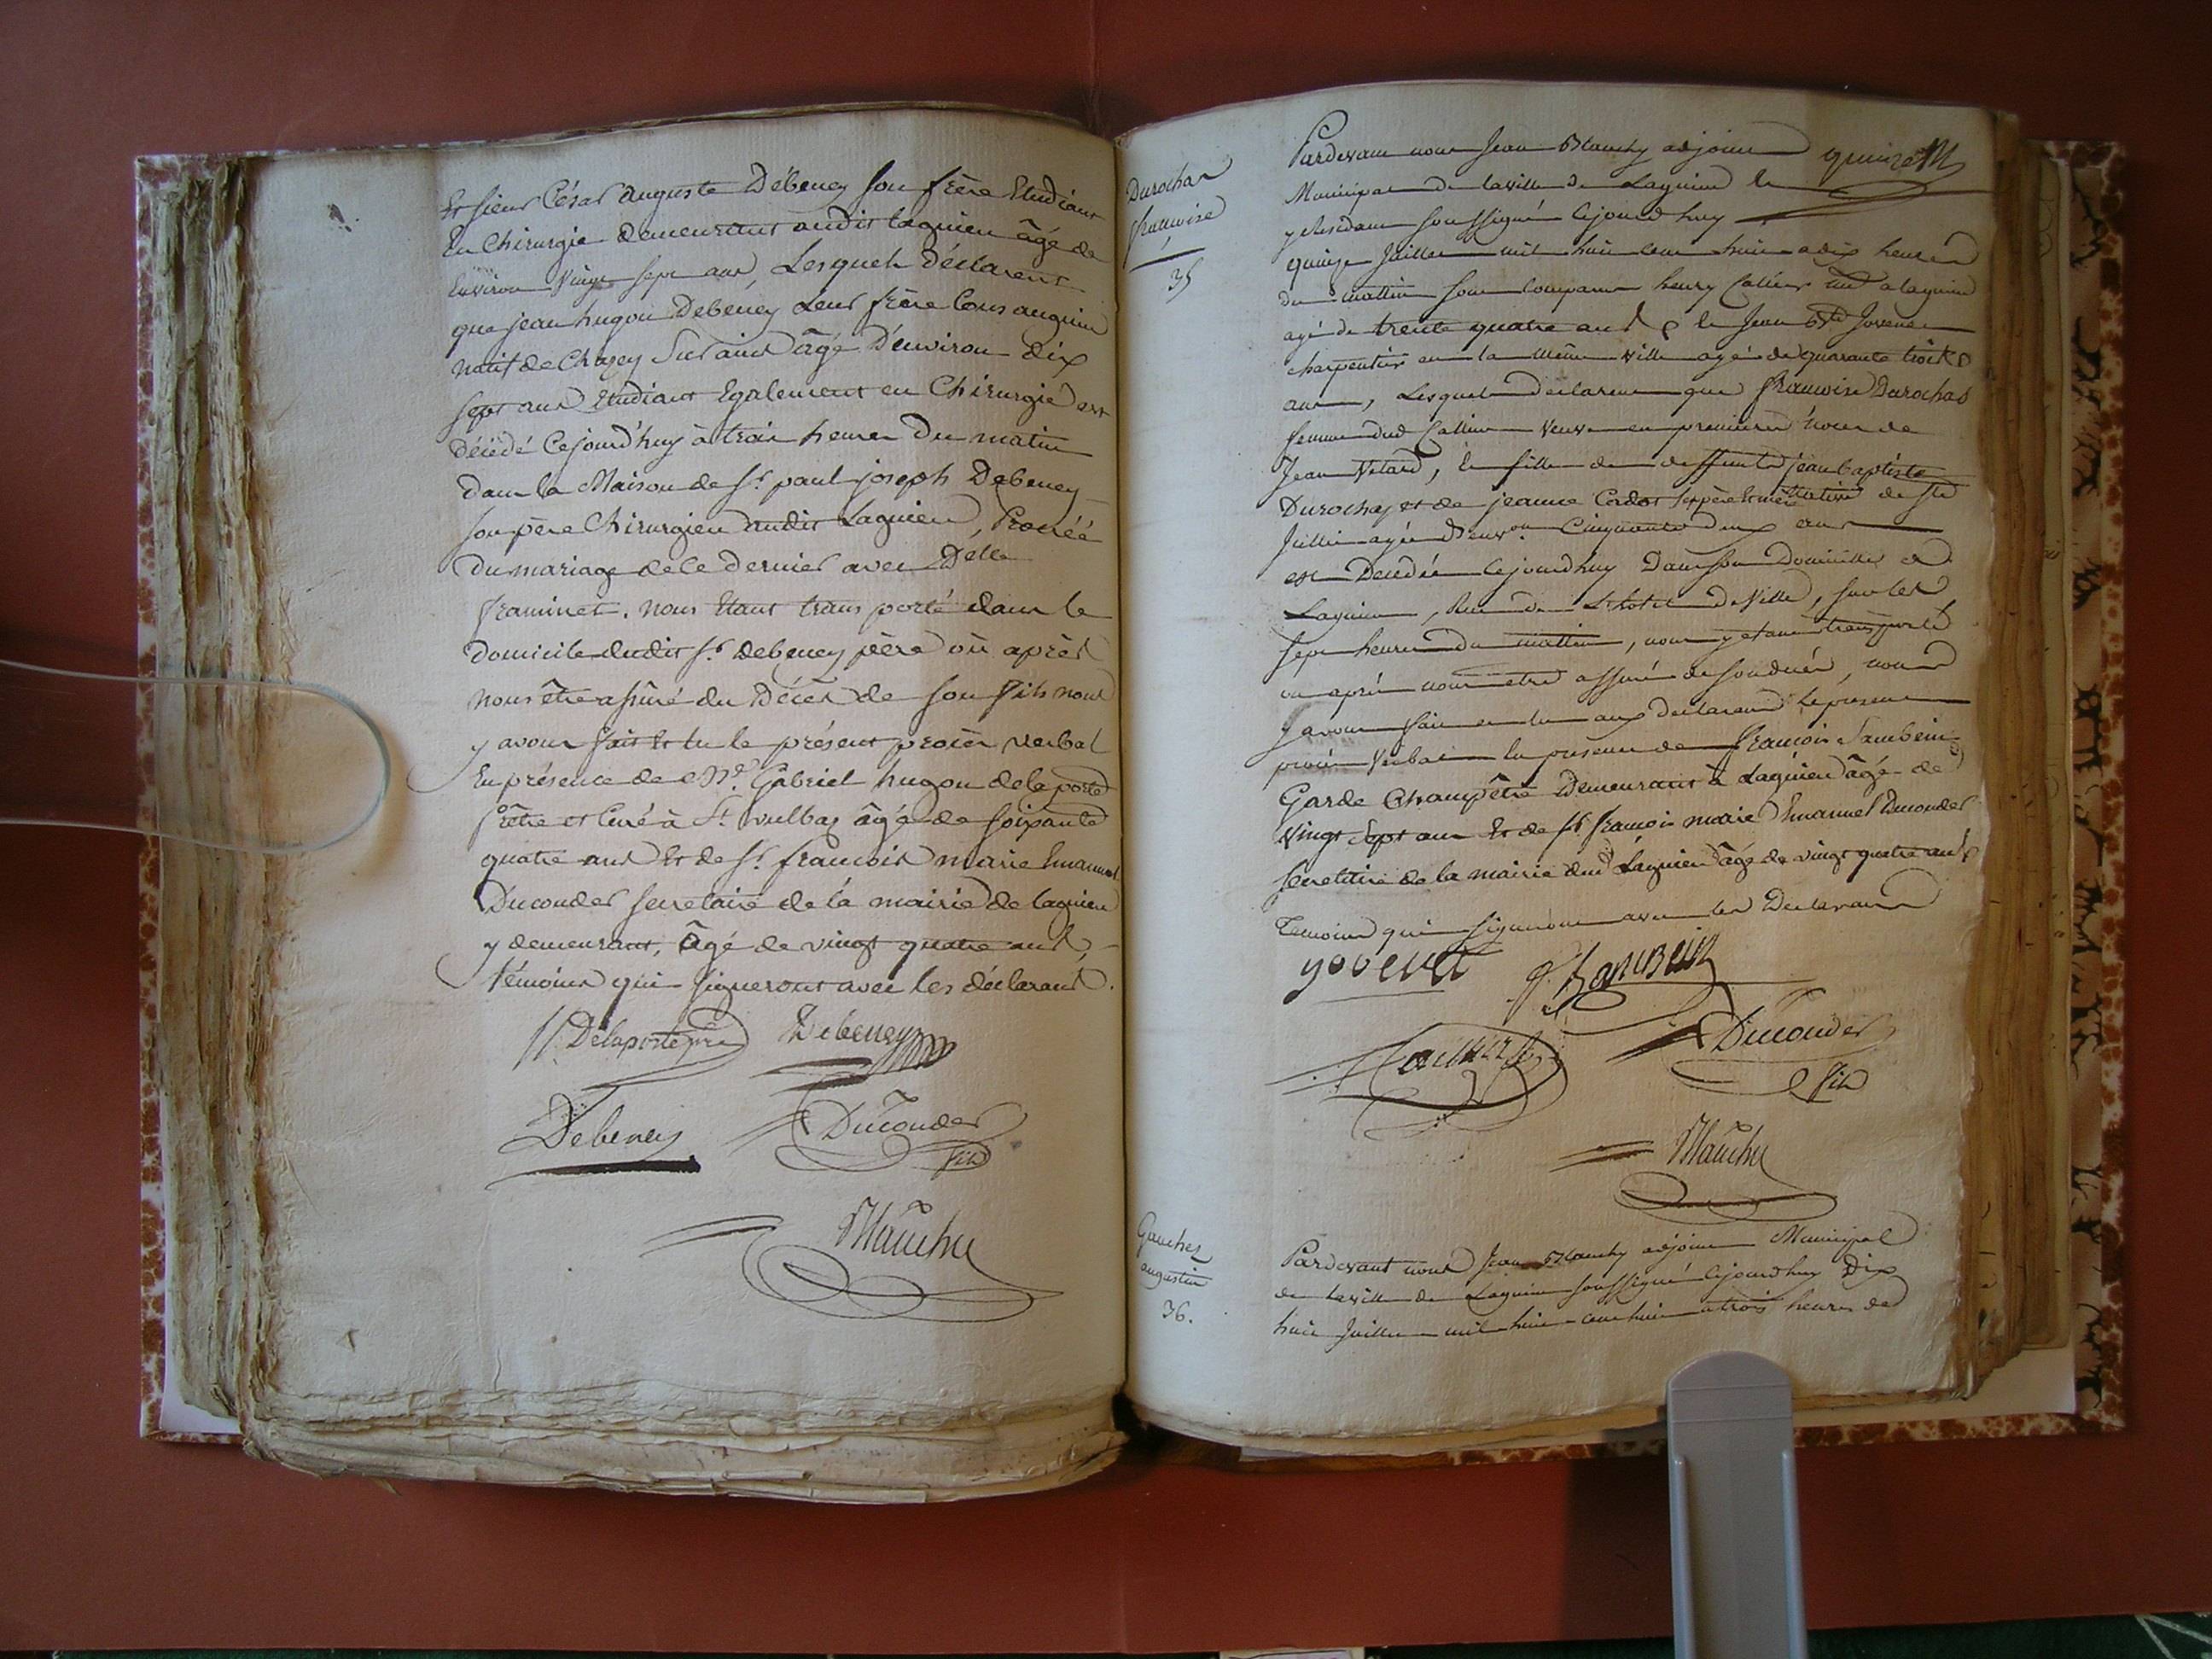 Et sieur César auguste Débeney son frère Etudiant
En Chirurgie demeurant audit lagnieu âgé de
Environ Vingt sept ans, Lesquels déclarent
que jean hugon Debeney Leur frère Consanguin
natif de Chazey Sur aind âgé D'environ dix
sept ans Etudiant Egalement en Chirurgie est
décédé Cejourd'huy à trois heures Du matin
dans la Maison de Sr. paul joseph Debeney
son père Chirurgien audit Lagnieu, Procréé
Du mariage de Ce dernier avec Delle
framinet. nous Etant transporté dans le
domicile dudit Sr. Debeney père où après
nous être assuré du Décès de son fils nous
y avons fait Et lu le présent procès verbal
En présence de Gabriel hugon delaporte
Prêtre et Curé à St. vulbas âgé de soixante
quatre ans Et de Sr. francois marie Emanuel
Duconder secretaire de la mairie de lagnieu
y demeurant, âgé de vingt quatre ans,
témoins qui signeront avec les déclarants.
Delaporte Debeney
Debeney Duconder
fils
Blanchy
Durochas
françoise
35
Pardevant nous Jean Blanchy adjoint quinze
Municipal de la ville de Lagnieu
y Residant soussigné Cejourd huy
quinze Juillet mil huit cent huit a dix heures
du mattin sont comparus henry Collier a lagnieu
agé de trente quatre ans & le Jean Bte Jovenet
charpentier en la même ville agé de quarante trois
ans, Lesquels declarent que françoise Durochas
femme dud Collier Veuve en premiere noces de
Jean Vetard, & fille de deffunts jean baptiste
Durochas et de jeanne Cadot ses père & mère Native de St
Juillin agée d'env.on Cinquante deux ans
est Decedée Cejourdhuy Dans son Domicille a
Lagnieu, Rue de L'hotel de Ville, sur les
sept heures du mattin, nous y etant transporté
ou après nous être assuré de son decés, nous
y avons fait et lu aux declarants le present
procès Verbal en presence de françois Sambein
Garde Champêtre Demeurant à Lagnieu âgé de
vingt Sept ans Et de Sr. françois marie Emanuel Duconder
secretaire de la mairie dud Lagnieu âgé de vingt quatre ans
Temoins qui signeront avec les Declarants
yovenet Sambein
Duconder
fils
Blanchy
Gauches
augustin
36.
Pardevant nous Jean Blanchy adjoint Municipal
de la ville de Lagnieu soussigné Cejourdhuy Dix
huit Juillet mil huit cent huit a trois heures de